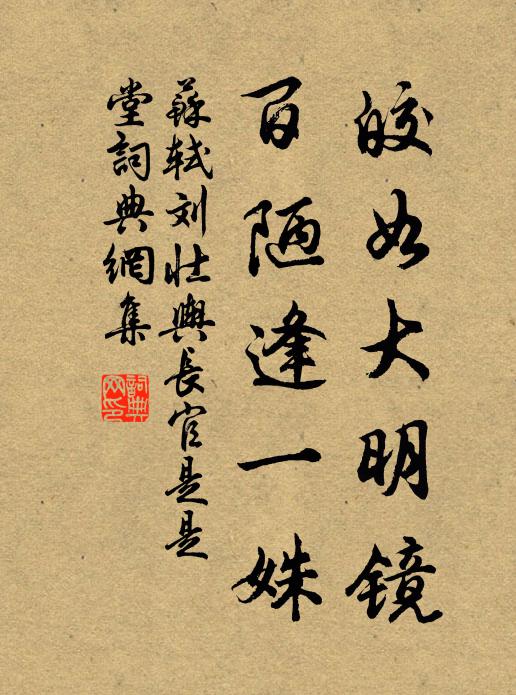 皎如大明镜
百陋逢一姝
蘇轼刘壮輿長官是是
堂詞典網集
詞典網印